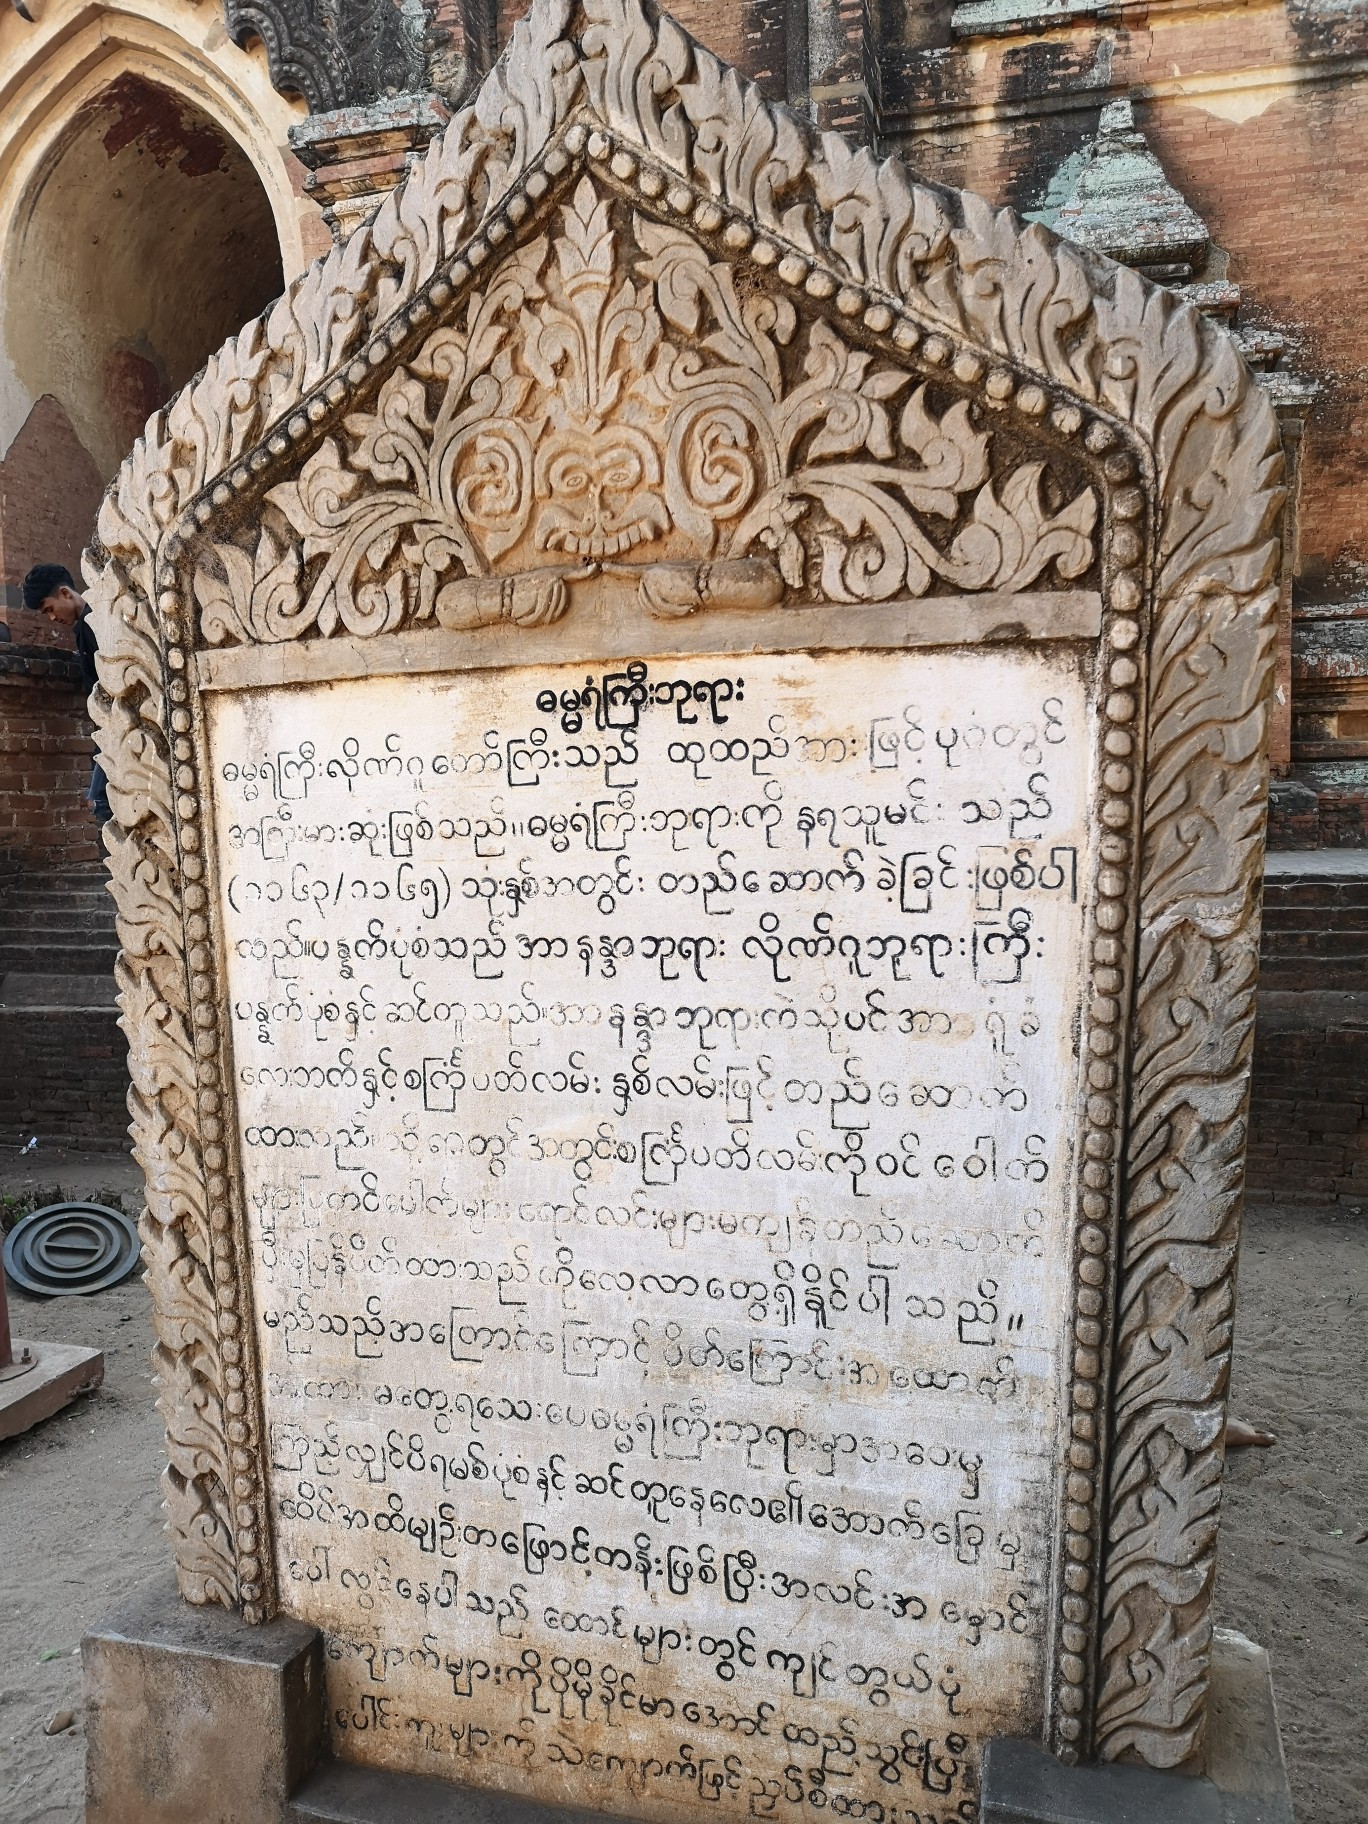 ဓမ္မရံကြီးဘုရား
ဓမ္မရံကြီးလိုဏ်ဂူတော်ကြီးသည် ထုထည်အားဖြင့် ပုဂံတွင်
အကြီးမားဆုံးဖြစ်သည်။ဓမ္မရံကြီးဘုရားကို နရသူမင်း သည်
(၁၁၆၃/၁၁၆၅) သုံးနှစ်အတွင်း တည်ဆောက် ခဲ့ခြင်းဖြစ်ပါ
သည်။ပန္နက်ပုံစံသည် အာနန္ဒာဘုရား လိုဏ်ဂူဘုရားကြီး
ပန္နက်ပုံစံနှင့် ဆင်တူသည်။အာနန္ဒာဘုရားကဲသို့ပင် အာရုံခံ
လေးဘက်နှင့်စင်္ကြံပတ်လမ်း နှစ်လမ်းဖြင့် တည်ဆောက်
ထားသည်။ တွင်အတွင်းစင်္ကြံပတ်လမ်းကိုဝင်ပေါက်
များပြတင်ပေါက်များ ရောင်လင်းများမကျန်တည်ဆောက်
ပြီးမှပြန်ပိတ်ထားသည်ကိုလေ့လာတွေ့ရှိနိုင်ပါ သည်။
မည်သည့်အကြောင်းကြောင့် ပိတ်ကြောင်းအထောက်
အထား မတွေ့ရသေးပေဓမ္မရံကြီးဘုရားမှာအဝေးမှ
ကြည့်လျှင်ပိရမစ်ပုံစံနှင့်ဆင်တူနေလေ၏။အောက်ခြေမှ
ထိပ်အထိမျဉ်းတဖြောင့်တန်းဖြစ်ပြီးအလင်းအမှောင်
ပေါ်လွင်နေပါသည် ထောင့်များတွင်ကျင်တွယ်ပုံ
ကျောက်များကိုပိုမိုခိုင်မာအောင် တည့်သွင်းပြီး
ပေါင်းကူးများကို သဲကျောက်ဖြင့် ညှပ်စီထားသည်